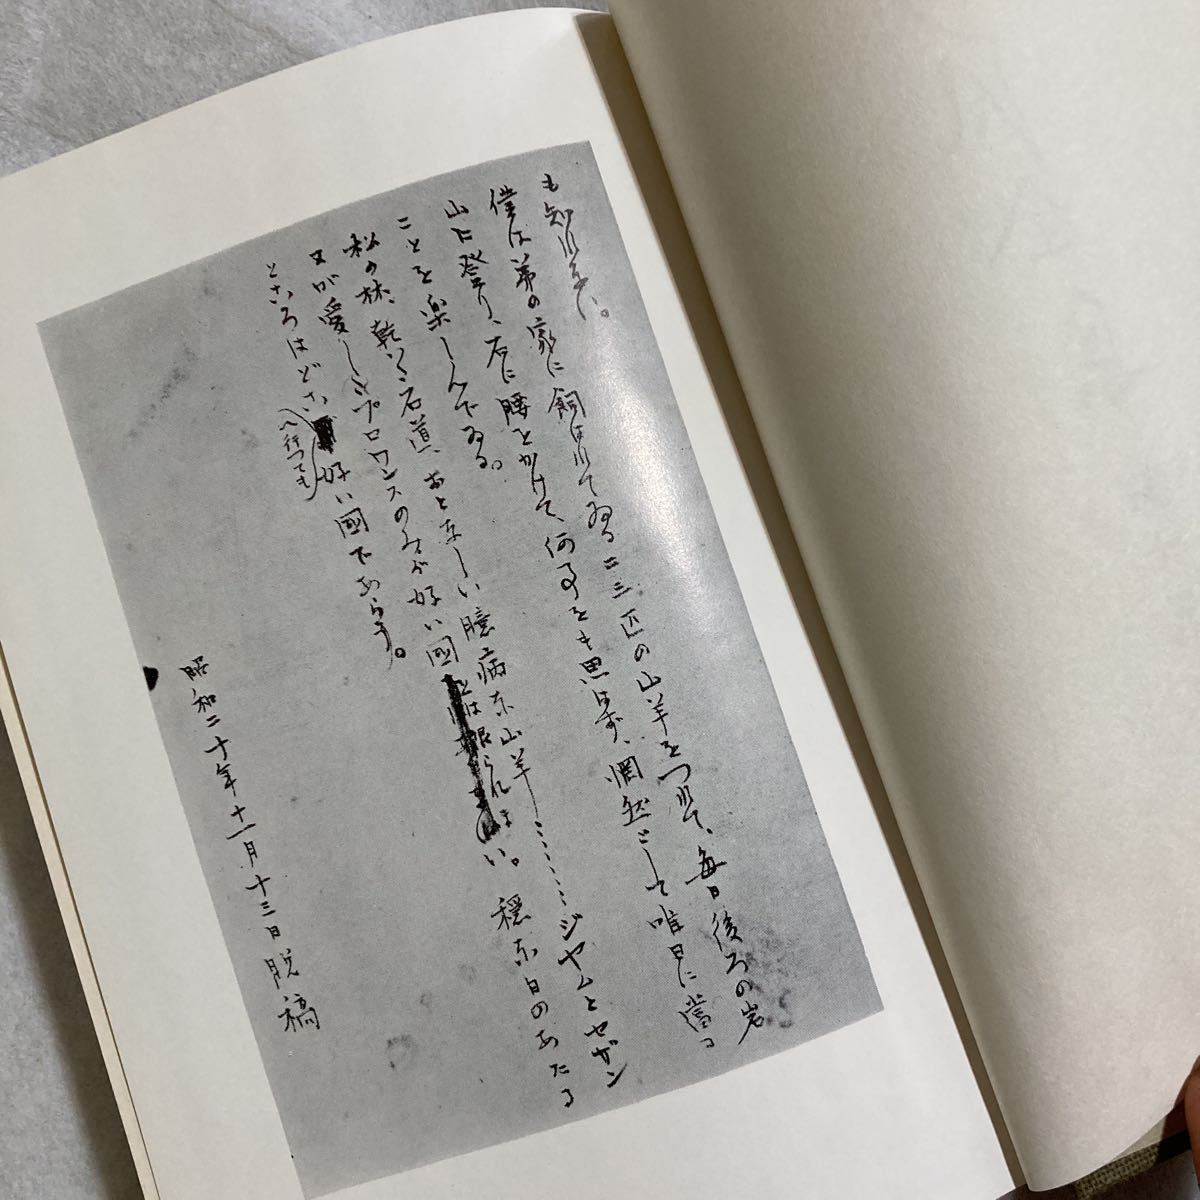 も知れない。
僕は弟の家に飼はれてゐる二三匹の山羊をつれて、毎日後ろの岩
山に登り、石に腰をかけて、何事をも思はず、惘然として唯日に當る
ことを楽しんでゐる。
松の林、乾いた石道、おとなしい臆病な山羊……ジャムとセザン
ヌが愛したプロワンスのみが好い國とは限らない。穏な日のあたる
ところはどこへ行つても好い國であらう。
昭和二十年十一月十三日脱稿